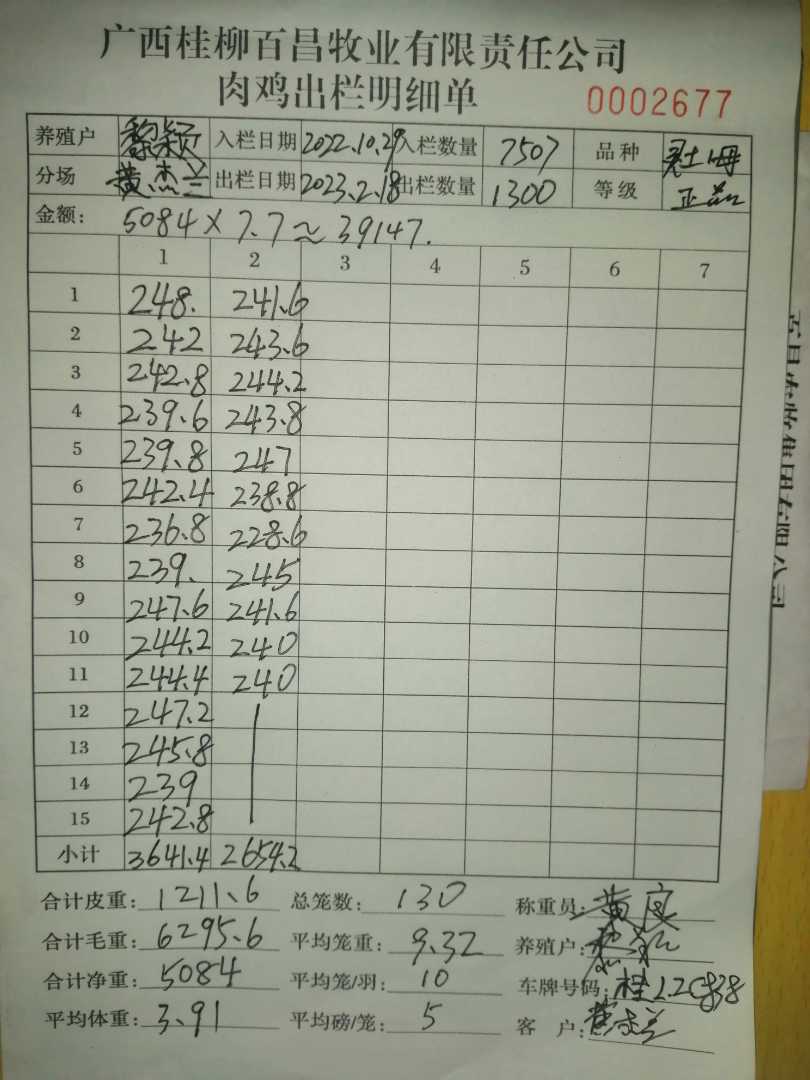 广西桂柳百昌牧业有限责任公司
肉鸡出栏明细单 0002677
养殖户 黎颖 入栏日期 2022.10.29 入栏数量 7507 品种
分场 黄杰兰 出栏日期 2023.2.18 出栏数量 1300 等级 正品
金额: 5084×7.7≈39147.
1 2 3 4 5 6 7
1 248. 241.6
2 242 243.6
3 242.8 244.2
4 239.6 243.8
5 239.8 247
6 242.4 238.8
7 236.8 228.6
8 239. 245
9 247.6 241.6
10 244.2 240
11 244.4 240
12 247.2
13 245.8
14 239
15 242.8
小计 3641.4 2654.2
合计皮重: 1211.6 总笼数: 130 称重员:
合计毛重: 6295.6 平均笼重: 9.32 养殖户:
合计净重: 5084 平均笼/羽: 10 车牌号码:
平均体重: 3.91 平均磅/笼: 5 客户: